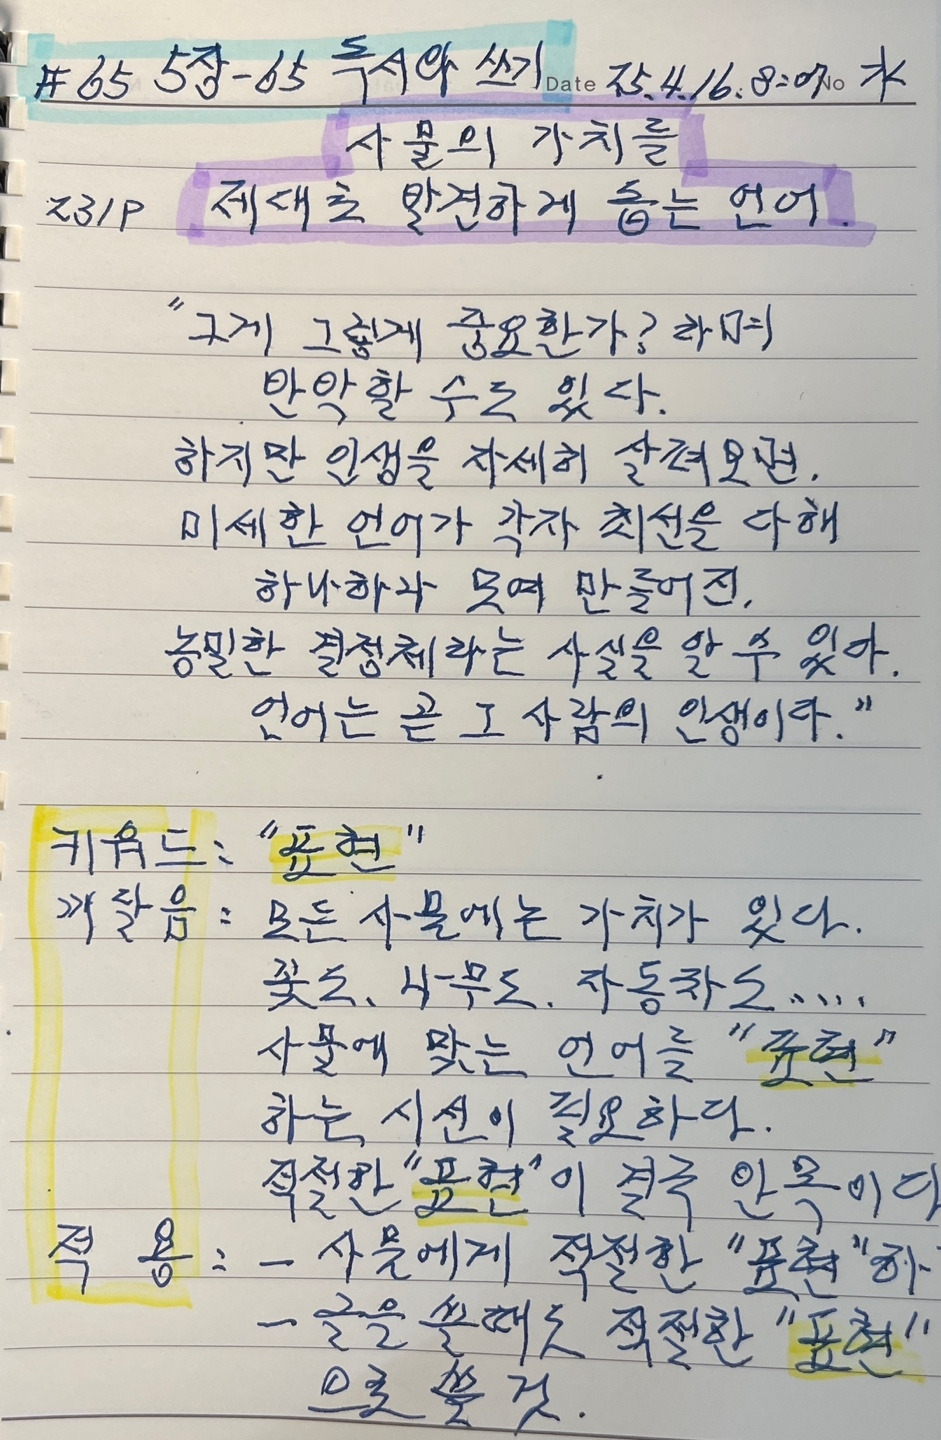 #65 5장-65 독서와 쓰기 Date 25.4.16. 8:07 No 水
사물의 가치를
231P 제대로 발견하게 돕는 언어.
"그게 그렇게 중요한가? 라며
반박할 수도 있다.
하지만 인생을 자세히 살펴보면.
미세한 언어가 각자 최선을 다해
하나하나 모여 만들어진.
농밀한 결정체라는 사실을 알 수 있다.
언어는 곧 그 사람의 인생이다."
키워드: "표현"
깨달음: 모든 사물에는 가치가 있다.
꽃도, 나무도, 자동차도.....
사물에 맞는 언어를 "표현"
하는 시선이 필요하다.
적절한 "표현"이 결국 안목이다
적 용: - 사물에게 적절한 "표현"하
- 글을 쓸때도 적절한 "표현"
으로 쓸 것.